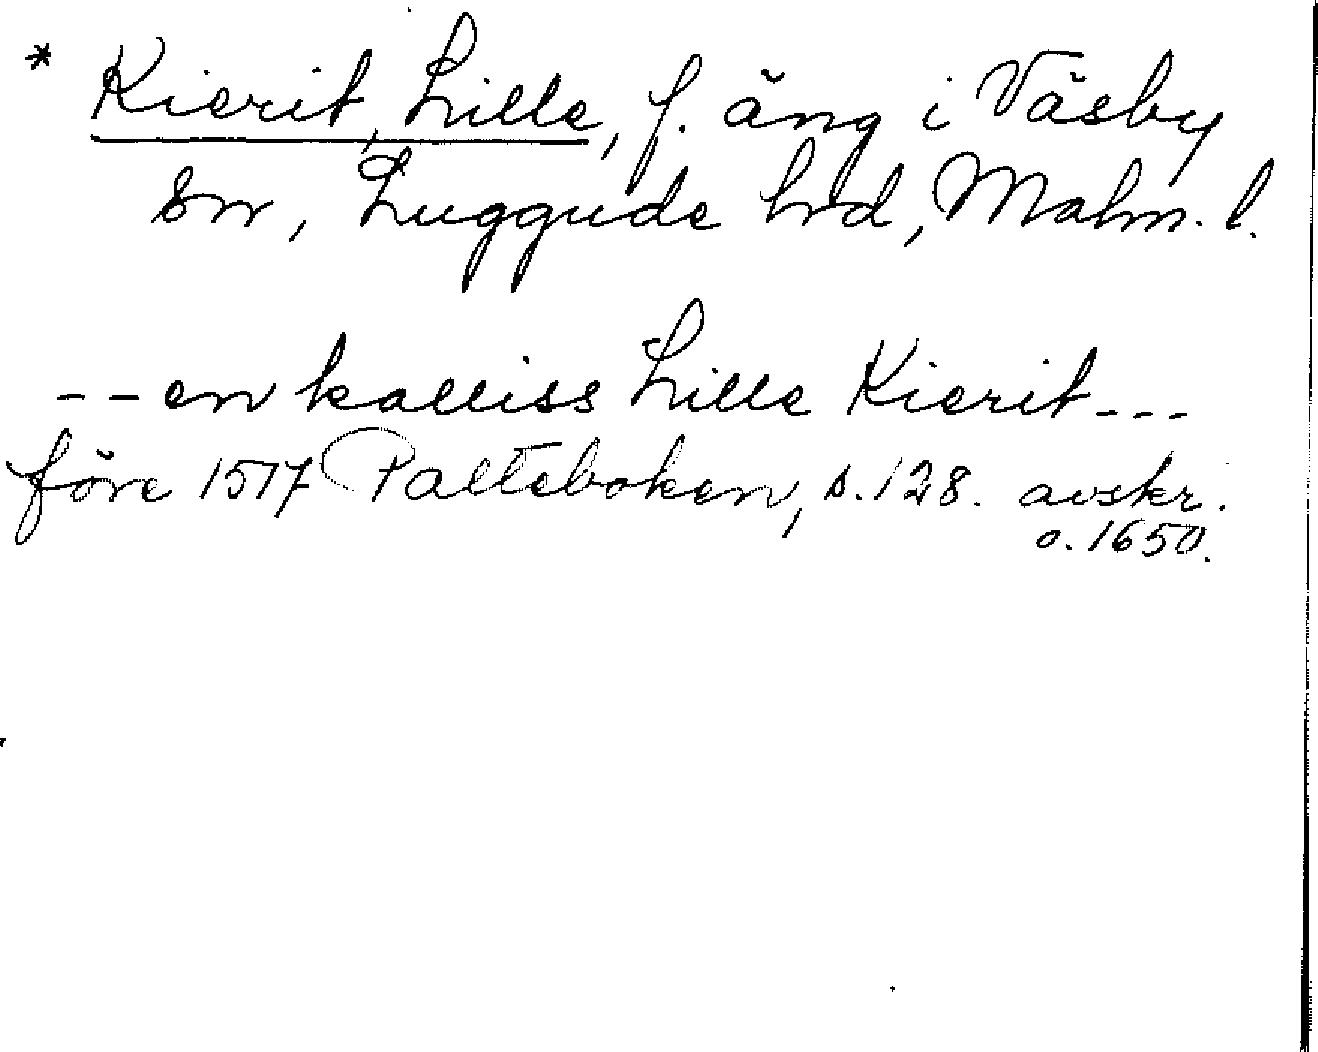 * Kierit, Lille, f. äng i Väsby
sn, Luggude hrd, Malm. l.
-- en kalliss Lille Kierit ---
före 1517 Palteboken, s. 128. avskr.
o. 1650.